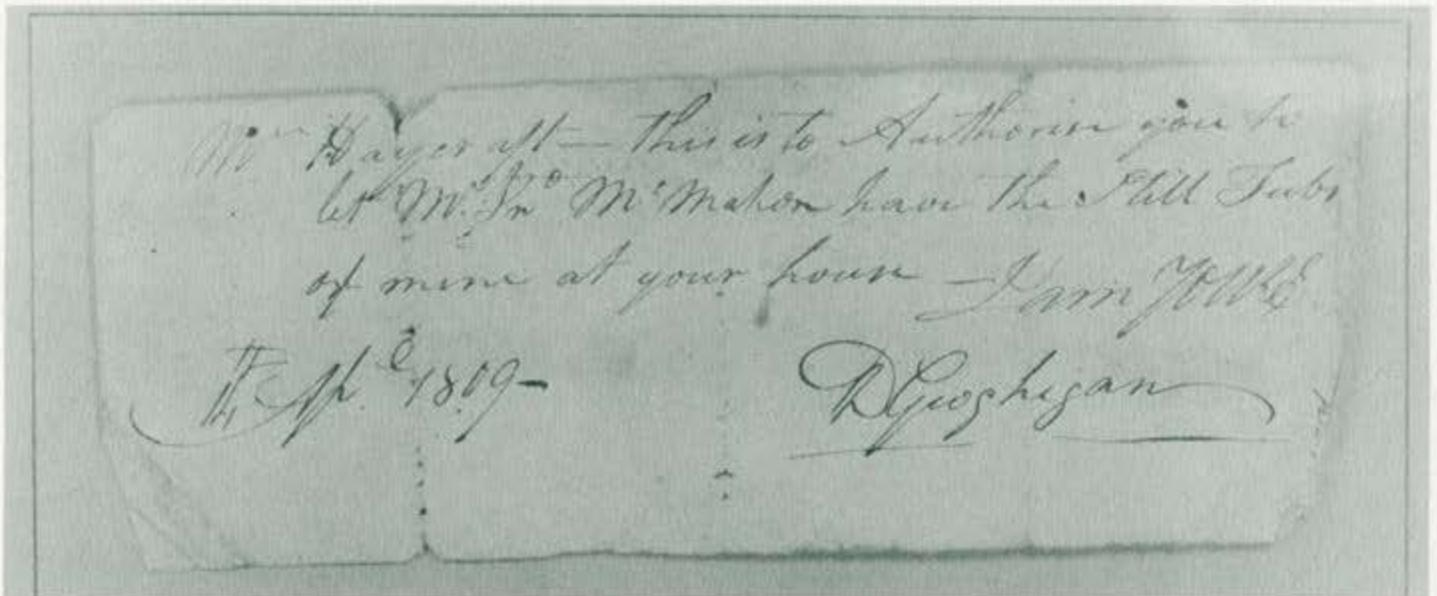 Mr Haycraft — this is to Authorise you to
let Mr. Jno McMahon have the Still Tubs
of mine at your house — I am
Apl 1809 –
D Geoghigan